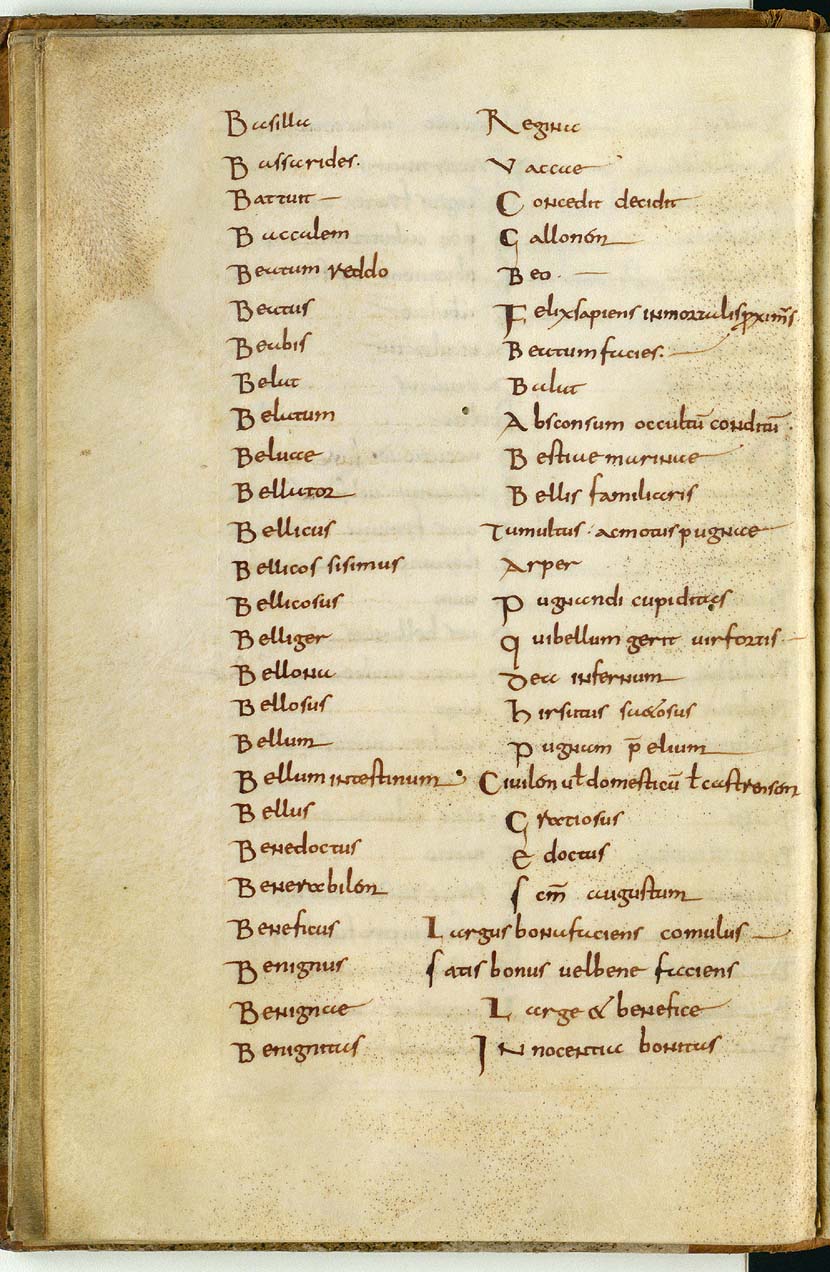 Basilla Regina
Bassarides. Vaccae
Battuit Concedit decidit
Baccalem Gallonem
Beatum reddo Beo.
Beatus Felix sapiens inmortalis proximus
Beabis Beatum facies.
Belat Balat
Belatum Absconsum occultū conditū.
Beluae Bestiae marinae
Bellator Bellis familiaris
Bellicus Tumultus. ac motus pugnae
Bellicos sisimus Arper
Bellicosus Pugnandi cupiditas
Belliger Qui bellum gerit uir fortis
Bellona Dea infernum
Bellosus Hirsutus
Bellum Pugnam p̄elium
Bellum intestinum Ciuilem ul̄ domesticū ł castrensem
Bellus Gratiosus
Benedoctus Edoctus
Benerabilem Scm̄ augustum
Beneficus Largus bona faciens comulus
Benignus Satis bonus uel bene faciens
Benignae Large & benefice
Benignitas Innocentia bonitas